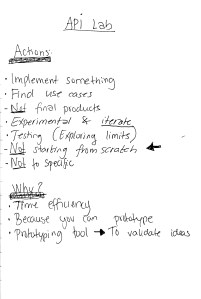 API Lab
Actions:
· Implement something
· Find use cases
- Not final products
· Experimental & iterate
· Testing (Exploring limits)
- Not starting from scratch ←
- Not to specific
Why?
· Time efficiency
· Because you can prototype
· Prototyping tool → To validate ideas